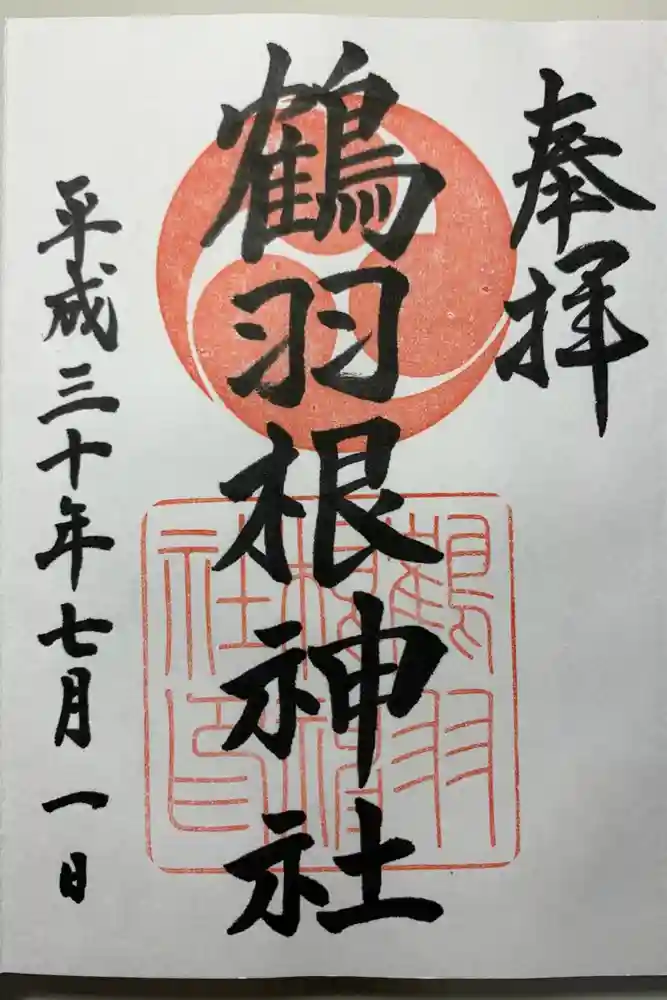 奉拝
鶴羽根神社
鶴羽根神社印
平成三十年七月一日